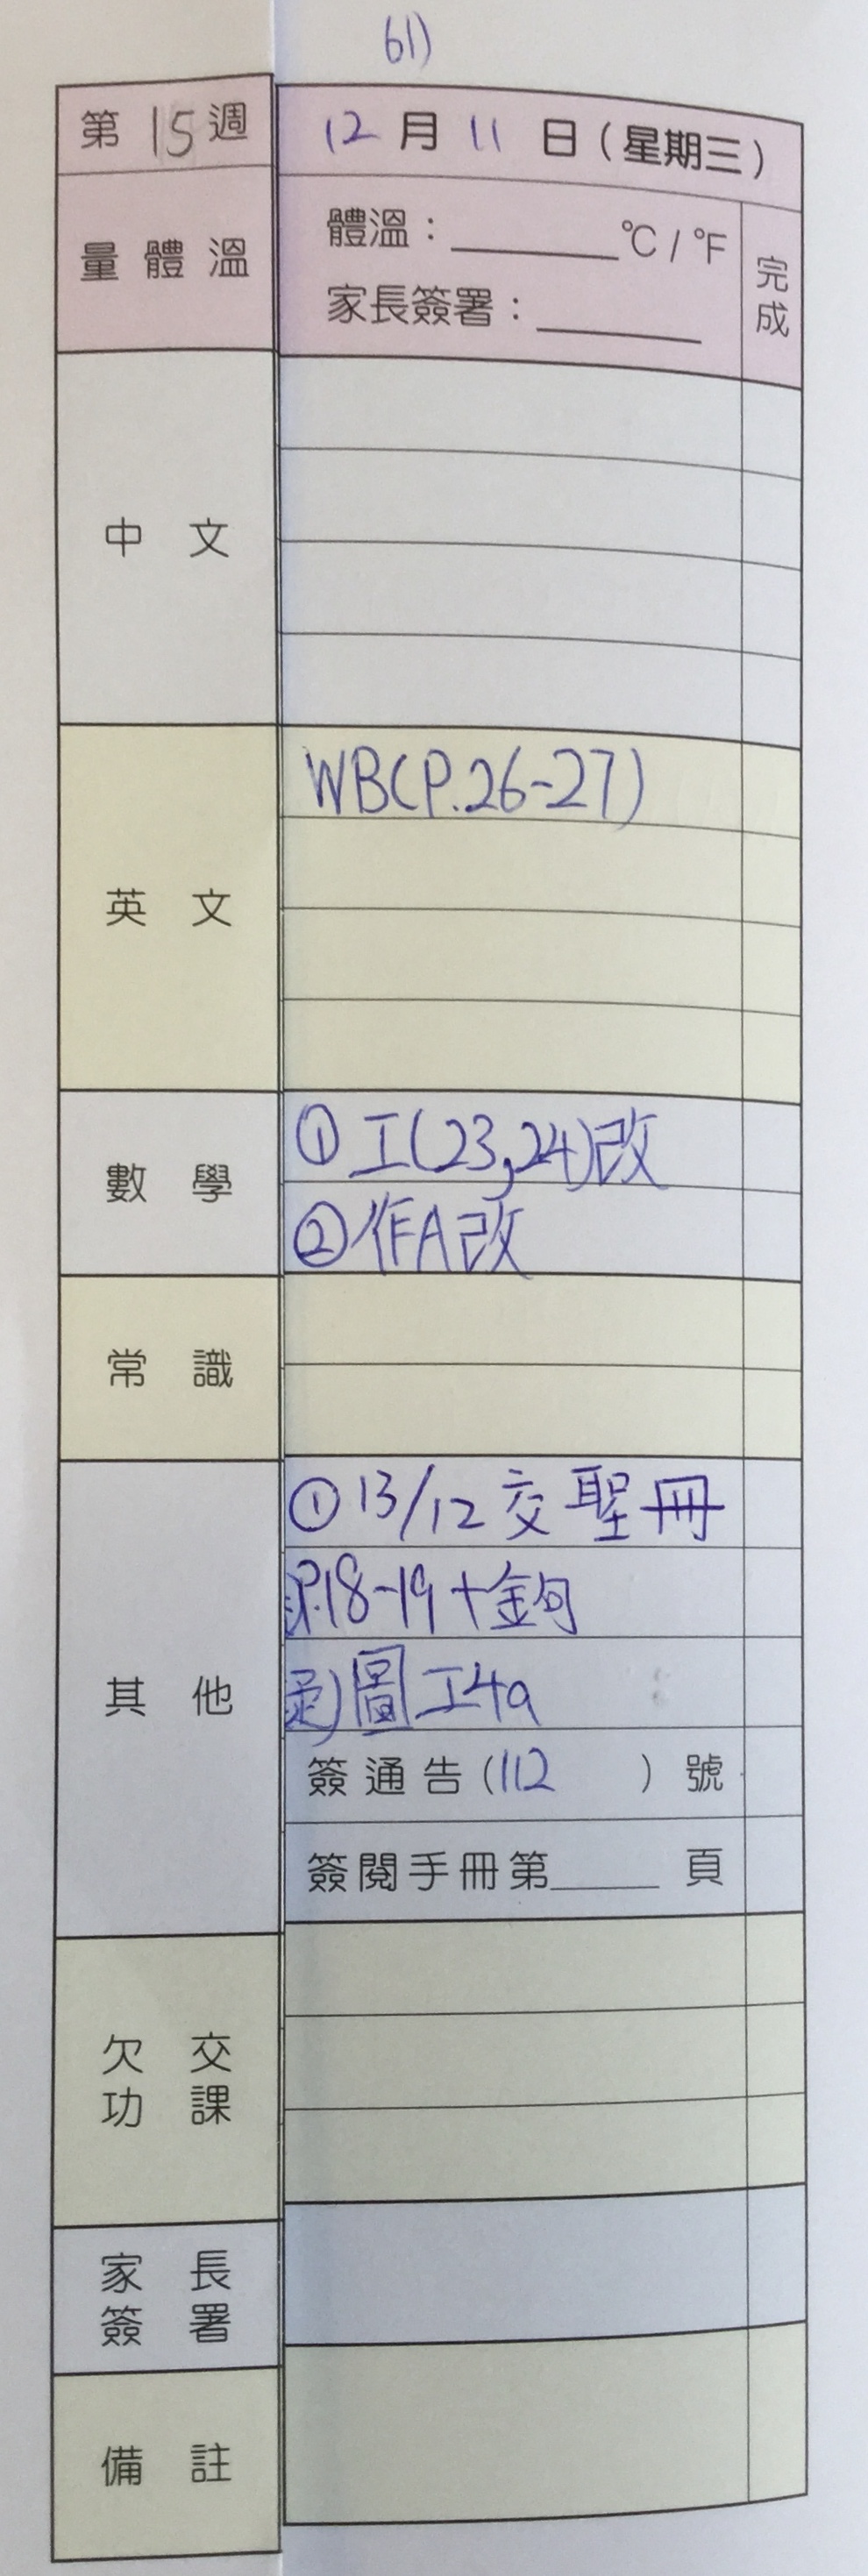 61)
第15週 12月11日(星期三)
量體溫 體溫:______°C / °F 完成
家長簽署:______
中文
英文 WB(P.26-27)
數學 ①工(23,24)改
②作A改
常識
其他 ①13/12交聖冊
P.18-19+金句
圖工4a
簽通告(112 )號
簽閱手冊第______頁
欠交功課
家長簽署
備註